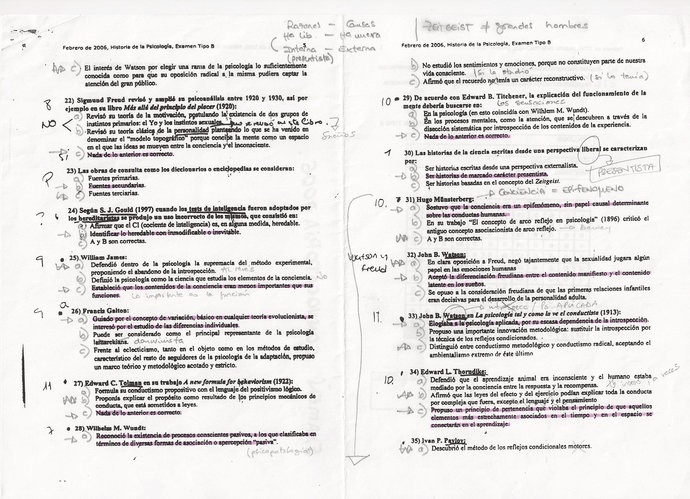 Razones - Causas
Ha Lib - Ha nueva
Interna - Externa
(presentista)
Febrero de 2006, Historia de la Psicología, Examen Tipo B
c) El interés de Watson por elegir una rama de la psicología lo suficientemente
conocida como para que su oposición radical a la misma pudiera captar la
atención del gran público.
8
22) Sigmund Freud revisó y amplió su psicoanálisis entre 1920 y 1930, así por
ejemplo en su libro Más allá del principio del placer (1920):
NO
a) Revisó su teoría de la motivación, postulando la existencia de dos grupos de
instintos primarios: el Yo y los instintos sexuales.
b) Revisó su teoría clásica de la personalidad planteando lo que se ha venido en
denominar el "modelo topográfico" porque concibe la mente como un espacio
en el que las ideas se mueven entre la conciencia y el inconsciente.
c) Nada de lo anterior es correcto.
23) Las obras de consulta como los diccionarios o enciclopedias se consideran:
a) Fuentes primarias.
b) Fuentes secundarias.
c) Fuentes terciarias.
24) Según S. J. Gould (1997) cuando los tests de inteligencia fueron adoptados por
los hereditaristas se produjo un uso incorrecto de los mismos, que consistió en:
a) Afirmar que el CI (cociente de inteligencia) es, en alguna medida, heredable.
b) Identificar lo heredable con inmodificable o inevitable.
c) A y B son correctas.
9
25) William James:
a) Defendió dentro de la psicología la supremacía del método experimental,
proponiendo el abandono de la introspección.
b) Definió la psicología como la ciencia que estudia los elementos de la conciencia. NO
c) Estableció que los contenidos de la conciencia eran menos importantes que sus
funciones. lo importante es la función
9
26) Francis Galton:
a) Guiado por el concepto de variación, básico en cualquier teoría evolucionista, se
interesó por el estudio de las diferencias individuales.
b) Puede ser considerado como el principal representante de la psicología
lamarckiana. darwinista
c) Frente al eclecticismo, tanto en el objeto como en los métodos de estudio,
característico del resto de seguidores de la psicología de la adaptación, propuso
un marco teórico y metodológico acotado y estricto.
11
27) Edward C. Tolman en su trabajo A new formula for behaviorism (1922):
a) Formula su conductismo propositivo con el lenguaje del positivismo lógico.
b) Proponía explicar el propósito como resultado de los principios mecánicos de
conducta, que está sometidos a leyes.
c) Nada de lo anterior es correcto.
7
28) Wilhelm M. Wundt:
a) Reconoció la existencia de procesos conscientes pasivos, a los que clasificaba en
términos de diversas formas de asociación o apercepción "pasiva".
(psicopatología)
ZEITGEIST ≠ grandes hombres
Febrero de 2006, Historia de la Psicología, Examen Tipo B
6
b) No estudió los sentimientos y emociones, porque no constituyen parte de nuestra
vida consciente. (Sí lo estudió)
c) Afirmó que el recuerdo no tenía un carácter reconstructivo. (Sí lo tenía)
10
29) De acuerdo con Edward B. Titchener, la explicación del funcionamiento de la
mente debería buscarse en: los sensaciones
a) En la psicología (en esto coincidía con Wilhlem M. Wundt).
b) En los procesos mentales, como la atención, que se descubren a través de la
disección sistemática por introspección de los contenidos de la experiencia.
c) Nada de lo anterior es correcto.
1
30) Las historias de la ciencia escritas desde una perspectiva liberal se caracterizan
por:
a) Ser historias escritas desde una perspectiva externalista.
b) Ser historias de marcado carácter presentista.
c) Ser historias basadas en el concepto del Zeitgeist.
PRESENTISTA
CONCIENCIA = EPIFENÓMENO
10.
31) Hugo Münsterberg:
a) Sostuvo que la conciencia era un epifenómeno, sin papel causal determinante
sobre las conductas humanas.
b) En su trabajo "El concepto de arco reflejo en psicología" (1896) criticó el
antiguo concepto asociacionista de arco reflejo. → Dewey
c) A y B son correctas.
Watson y
Freud
32) John B. Watson:
a) En clara oposición a Freud, negó tajantemente que la sexualidad jugara algún
papel en las emociones humanas
b) Aceptó la diferenciación freudiana entre el contenido manifiesto y el contenido
latente en los sueños.
c) Se opuso a la consideración freudiana de que las primeras relaciones infantiles
eran decisivas para el desarrollo de la personalidad adulta.
11.
33) John B. Watson en La psicología tal y como la ve el conductista (1913):
a) Elogiaba a la psicología aplicada, por su escasa dependencia de la introspección.
b) Propuso una importante innovación metodológica: sustituir la introspección por
la técnica de los reflejos condicionados.
c) Distinguió entre conductismo metodológico y conductismo radical, aceptando el
ambientalismo extremo de éste último
10.
34) Edward L. Thorndike:
a) Defendió que el aprendizaje animal era inconsciente y el humano estaba
mediado por la conciencia entre la respuesta y la recompensa.
b) Afirmó que las leyes del efecto y del ejercicio podían explicar toda la conducta
por compleja que fuera, excepto el lenguaje y el pensamiento.
c) Propuso un principio de pertenencia que violaba el principio de que aquellos
elementos más estrechamente asociados en el tiempo y en el espacio se
conectarán en el aprendizaje.
35) Ivan P. Pavlov:
a) Descubrió el método de los reflejos condicionales motores.